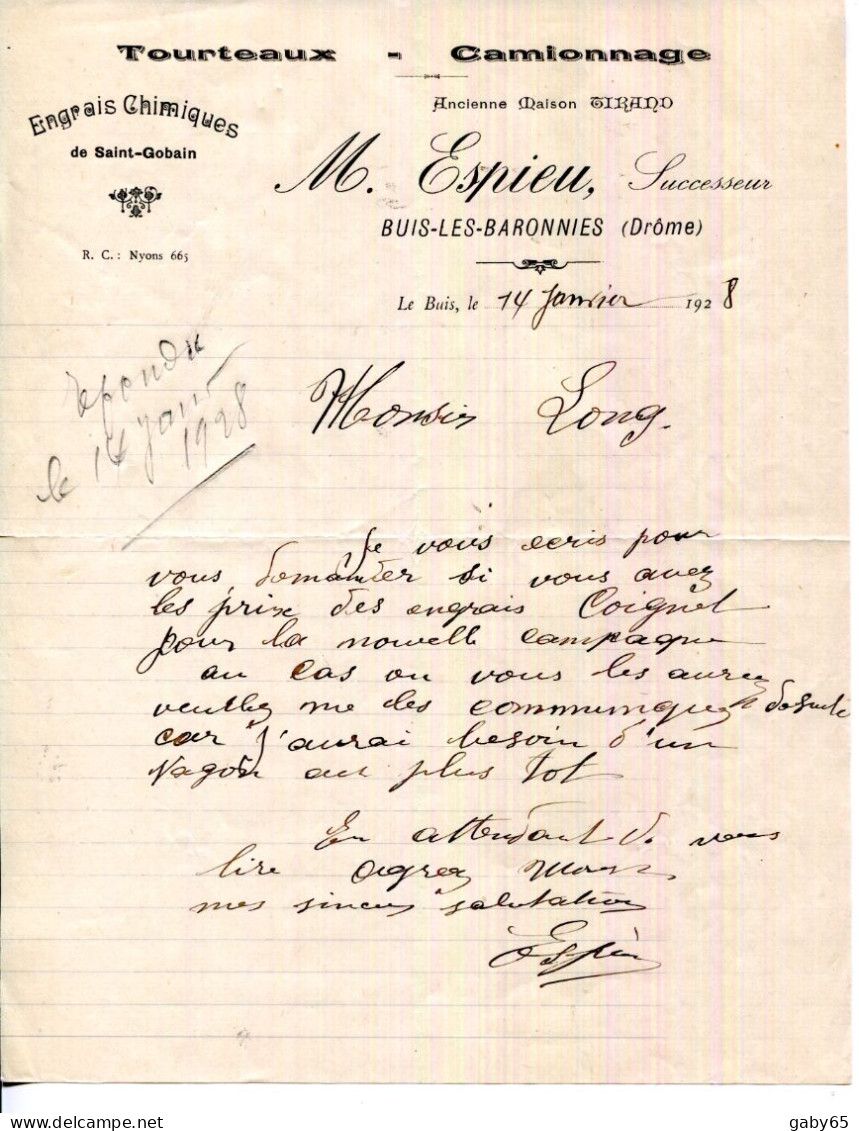 Tourteaux - Camionnage
Engrais Chimiques
de Saint-Gobain
R. C. : Nyons 665
Ancienne Maison TIRAND
M. Espieu, Successeur
BUIS-LES-BARONNIES (Drôme)
Le Buis, le 14 Janvier 1928
repondu
le 14 Janv
1928
Monsieur Long.
Je vous ecris pour
vous demander si vous avez
les prix des engrais Coignet
pour la nouvelle campagne
au cas ou vous les aurez
veuillez me les communiquez desuite
car j'aurai besoin d'un
Vagon au plus tot
En attendant de vous
lire agrez
mes sinceres salutations
Espieu
gaby65